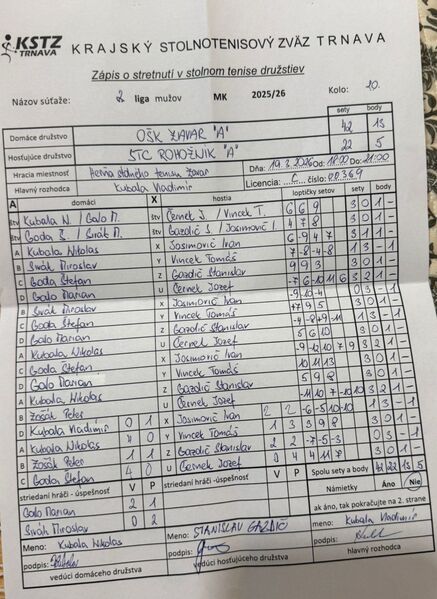 KSTZ TRNAVA KRAJSKÝ STOLNOTENISOVÝ ZVÄZ TRNAVA
Zápis o stretnutí v stolnom tenise družstiev
Názov súťaže: 2 liga mužov MK 2025/26 Kolo: 10.
sety body
Domáce družstvo OŠK ZAVAR "A" 42 13
Hosťujúce družstvo STC ROHOŽNÍK "A" 22 5
Hracia miestnosť Herňa stolného tenisu Zavar Dňa: 19.3.2026 Od: 18:00 Do: 21:00
Hlavný rozhodca Kubala Vladimír Licencia: C číslo:
A domáci X hostia loptičky setov sety body
štv Kubala N. / Galo M. štv Černek J. / Vincek T. 6 6 9 3 0 1 -
štv Goda Š. / Sirák M. štv Gazdič S. / Josimovič I. 4 7 8 3 0 1 -
A Kubala Nikolas X Josimovič Ivan 6 -9 4 7 3 1 1 -
B Sirák Miroslav Y Vincek Tomáš 7 -8 -4 -8 1 3 - 1
C Goda Štefan Z Gazdič Stanislav 9 9 3 3 0 1 -
D Galo Marian U Černek Jozef -7 6 -10 11 6 3 2 1 -
B Sirák Miroslav X Josimovič Ivan -9 -10 -4 0 3 - 1
C Goda Štefan Y Vincek Tomáš
D Galo Marian Z Gazdič Stanislav
A Kubala Nikolas U Černek Jozef 5 6 10 3 0 1 -
C Goda Štefan X Josimovič Ivan -9 -12 10 7 9 3 2 1 -
D Galo Marian Y Vincek Tomáš 10 11 13 3 0 1 -
A Kubala Nikolas Z Gazdič Stanislav 5 9 8 3 0 1 -
B Zošák Peter U Černek Jozef
D Kubala Vladimír 0 1 X Josimovič Ivan
A Kubala Nikolas 4 0 Y Vincek Tomáš 1 3 3 9 8 3 0 1 -
B Zošák Peter 1 1 Z Gazdič Stanislav 2 2 -7 -5 -3 0 3 - 1
C Goda Štefan 4 0 U Černek Jozef 0 4 4 11 7 3 0 1 -
striedaní hráči - úspešnosť V P striedaní hráči - úspešnosť V P Spolu sety a body 42 22 13 5
Galo Marian 2 1 Námietky Áno Nie
Sirák Miroslav 0 2 ak áno, tak pokračujte na 2. strane
Meno: Kubala Nikolas Meno: STANISLAV GAZDIČ meno: Kubala Vladimír
podpis: podpis: podpis:
vedúci domáceho družstva vedúci hosťujúceho družstva hlavný rozhodca